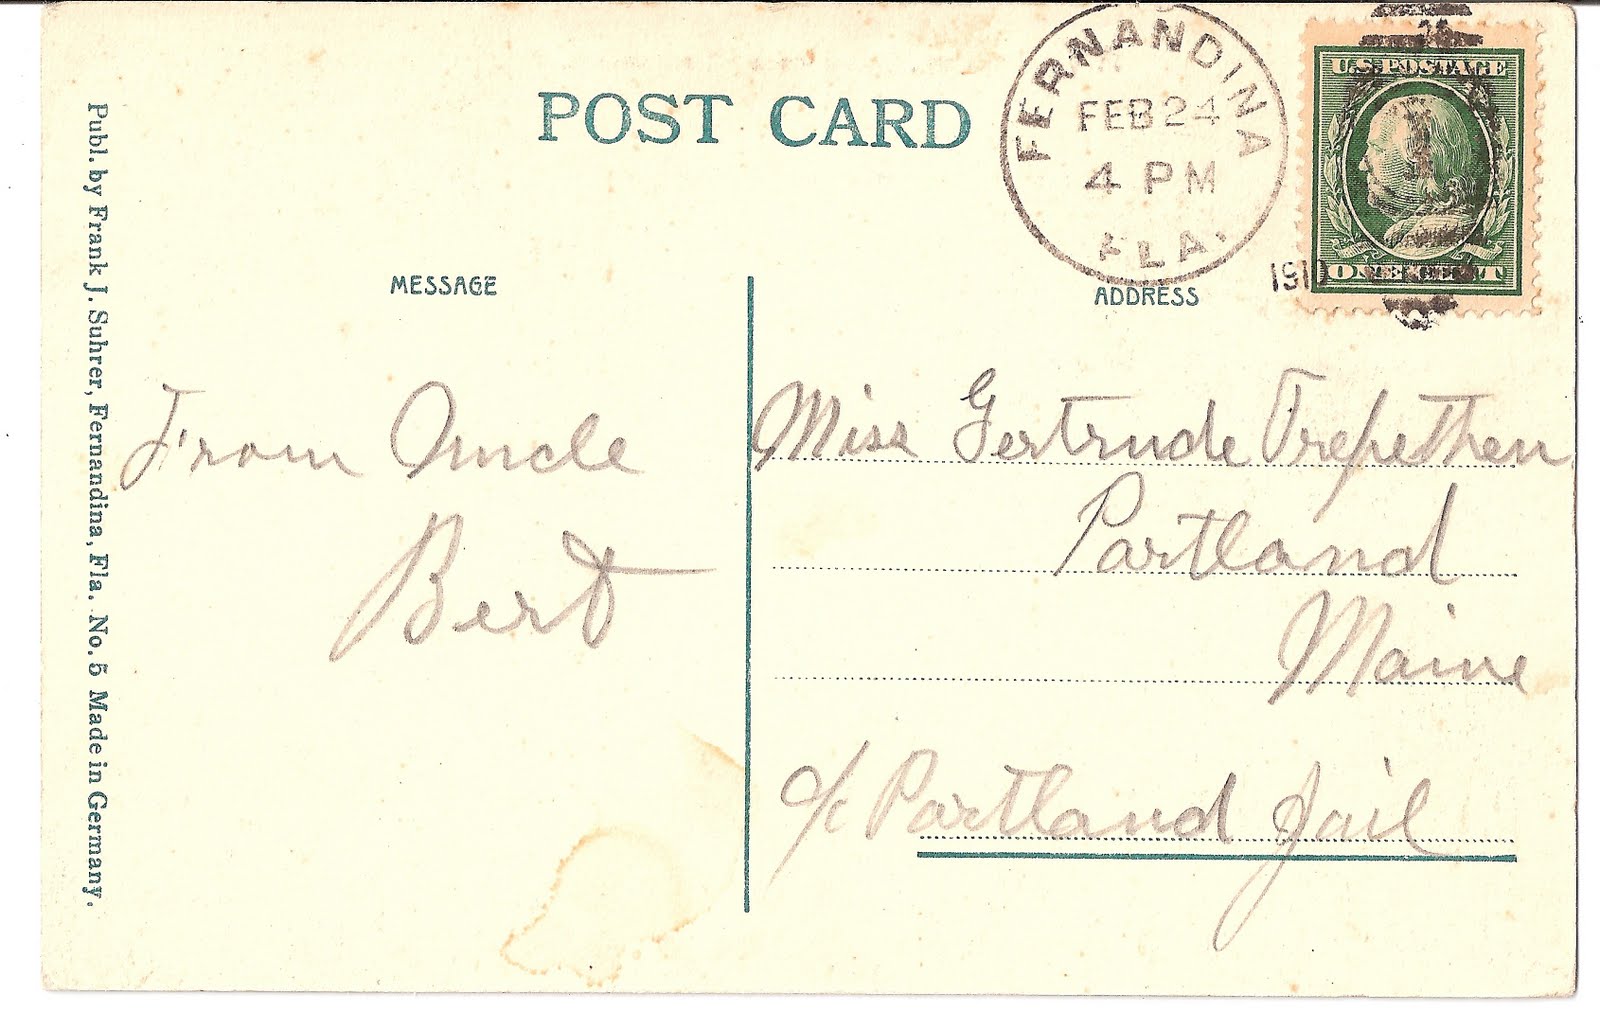 POST CARD
FERNANDINA
FEB 24
4 PM
FLA.
1910
U.S. POSTAGE
ONE CENT
MESSAGE
ADDRESS
From Uncle
Bert
Miss Gertrude Trefethen
Portland
Maine
c/o Portland Jail
Publ. by Frank J. Suhrer, Fernandina, Fla. No. 5 Made in Germany.